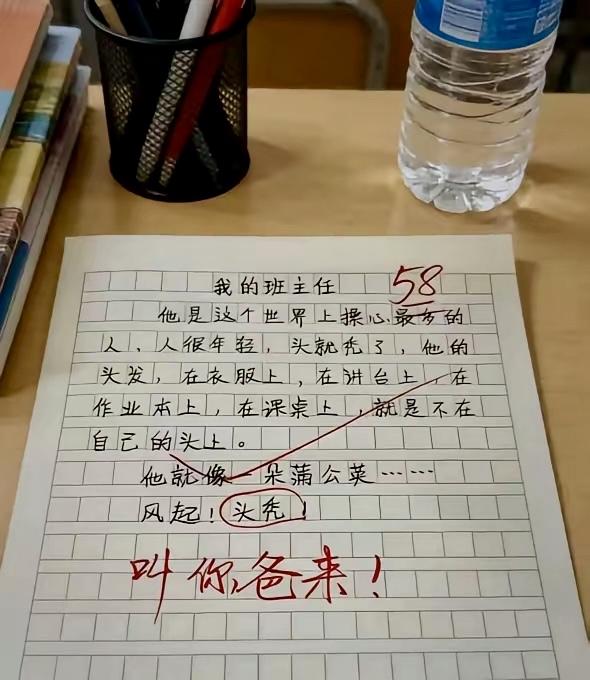 我的班主任
58
他是这个世界上操心最多的
人、人很年轻，头就秃了，他的
头发，在衣服上，在讲台上，在
作业本上，在课桌上，就是不在
自己的头上。
他就像一朵蒲公英……
风起！头秃！
叫你爸来！